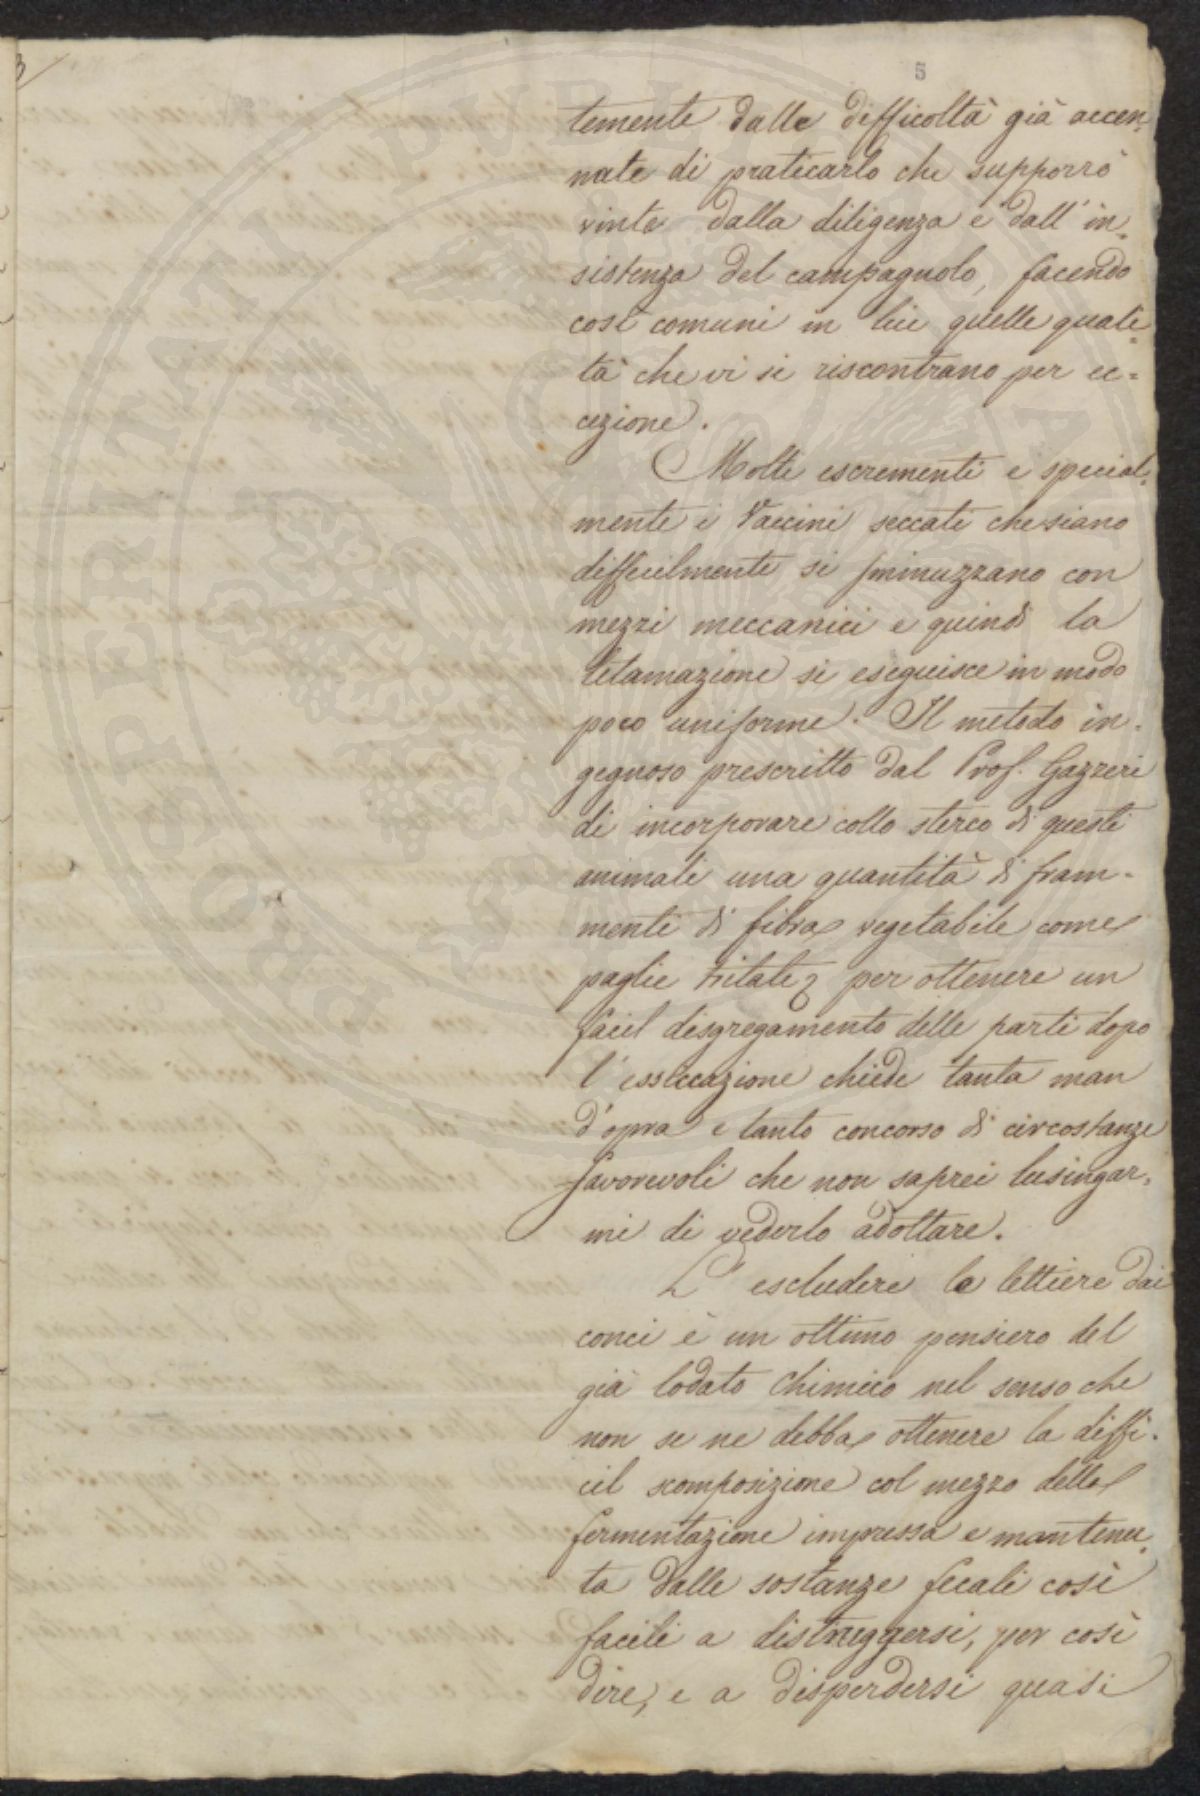 5
temente dalle difficoltà già accen,
nate di praticarlo che supporrò
vinte dalla diligenza e dall' in,
sistenza del campagnolo, facendo
così comuni in lui quelle quali,
tà che vi si riscontrano per ec=
cezione.
Molti escrementi e special,
mente i Vaccini seccati che siano
difficilmente si sminuzzano con
mezzi meccanici e quindi la
letamazione si eseguisce in modo
poco uniforme. Il metodo in,
gegnoso prescritto dal Prof. Gazzeri
di incorporare collo sterco di questi
animali una quantità di fram,
menti di fibra vegetabile come
paglie tritate per ottenere un
facil disgregamento delle parti dopo
l'essiccazione chiede tanta man
d'opra e tanto concorso di circostanze
favorevoli che non saprei lusingar,
mi di vederlo adottare.
L' escludere le lettiere dai
conci è un ottimo pensiero del
già lodato Chimico nel senso che
non se ne debba ottenere la diffi,
cil scomposizione col mezzo della
fermentazione impressa e mantenu,
ta dalle sostanze fecali così
facili a distruggersi, per così
dire, e a disperdersi quasi
PROSPERITATI PVBLICAE